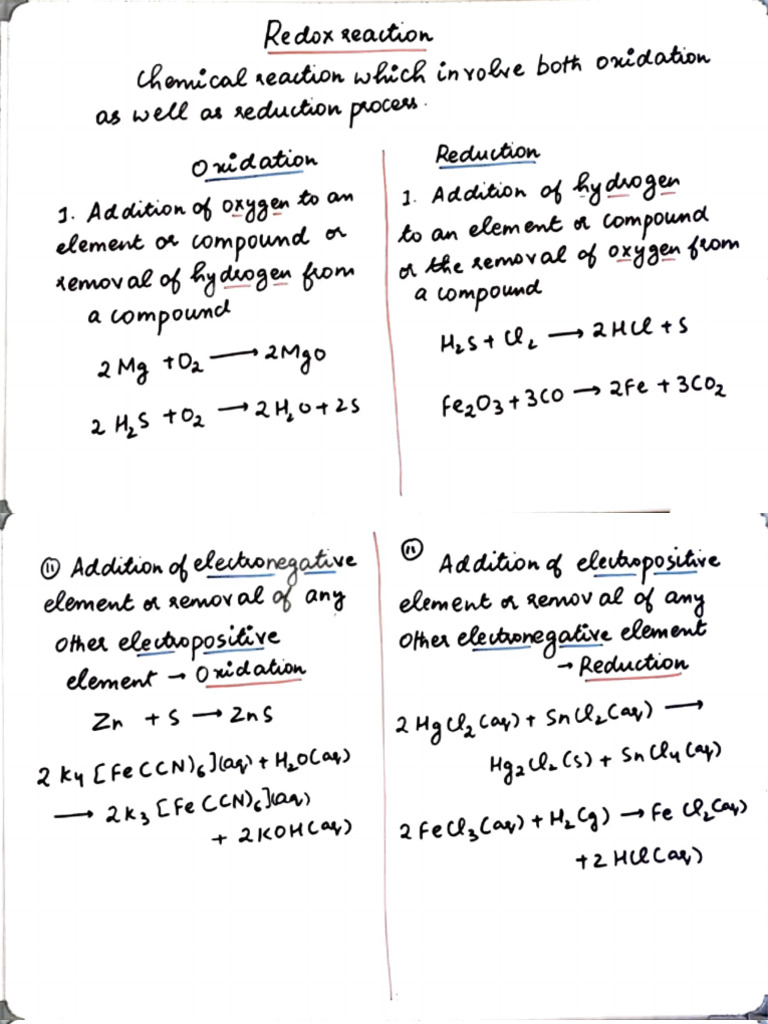 Redox reaction
Chemical reaction which involve both oxidation
as well as reduction process.
Oxidation
1. Addition of oxygen to an
element or compound or
removal of hydrogen from
a compound
2Mg + O₂ ⟶ 2MgO
2H₂S + O₂ → 2H₂O + 2S
Reduction
1. Addition of hydrogen
to an element or compound
or the removal of oxygen from
a compound
H₂S + Cl₂ ⟶ 2HCl + S
Fe₂O₃ + 3CO ⟶ 2Fe + 3CO₂
(ii) Addition of electronegative
element or removal of any
other electropositive
element → Oxidation
Zn + S → ZnS
2K4[Fe(CN)₆](aq) + H₂O(aq)
⟶ 2K₃[Fe(CN)₆](aq)
+ 2KOH(aq)
(ii) Addition of electropositive
element or removal of any
other electronegative element
→ Reduction
2HgCl₂(aq) + SnCl₂(aq) ⟶
Hg₂Cl₂(s) + SnCl4(aq)
2FeCl₃(aq) + H₂(g) → FeCl₂(aq)
+ 2HCl(aq)